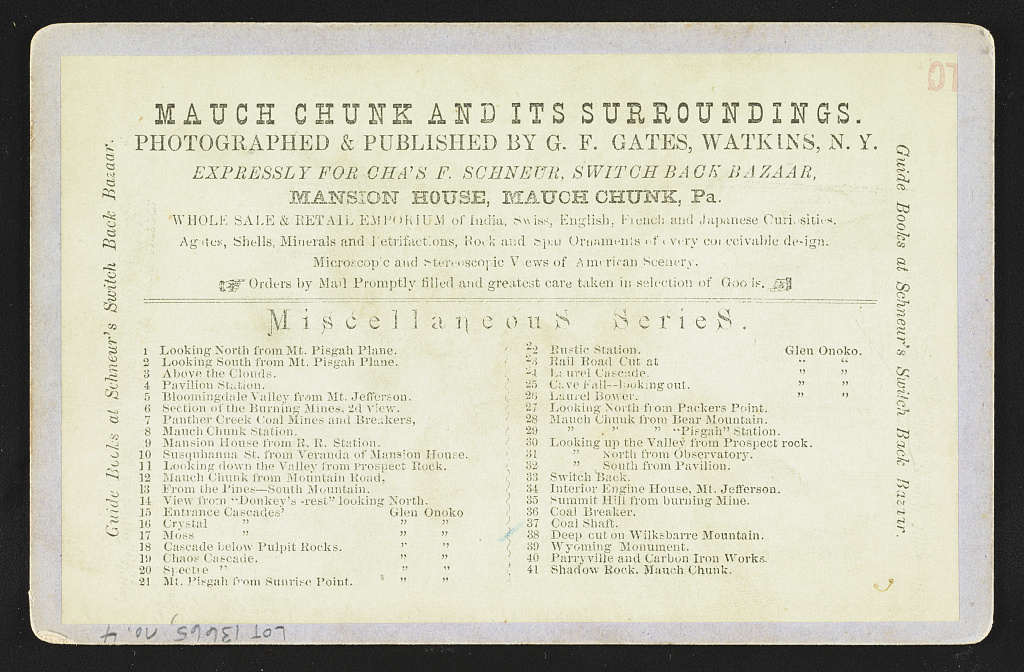 MAUCH CHUNK AND ITS SURROUNDINGS.
PHOTOGRAPHED & PUBLISHED BY G. F. GATES, WATKINS, N. Y.
EXPRESSLY FOR CHA'S F. SCHNEUR, SWITCH BACK BAZAAR,
MANSION HOUSE, MAUCH CHUNK, Pa.
WHOLE SALE & RETAIL EMPORIUM of India, Swiss, English, French and Japanese Curiosities,
Agates, Shells, Minerals and Petrifactions, Rock and Spar Ornaments of every conceivable design.
Microscopic and Stereoscopic Views of American Scenery.
☞ Orders by Mail Promptly filled and greatest care taken in selection of Goods. ☜
Miscellaneous Series.
1 Looking North from Mt. Pisgah Plane.
2 Looking South from Mt. Pisgah Plane.
3 Above the Clouds.
4 Pavilion Station.
5 Bloomingdale Valley from Mt. Jefferson.
6 Section of the Burning Mines, 2d View.
7 Panther Creek Coal Mines and Breakers,
8 Mauch Chunk Station.
9 Mansion House from R. R. Station.
10 Susqnhanna St. from Veranda of Mansion House.
11 Looking down the Valley from Prospect Rock.
12 Mauch Chunk from Mountain Road,
13 From the Pines—South Mountain.
14 View from "Donkey's -rest" looking North.
15 Entrance Cascades' Glen Onoko
16 Crystal " " "
17 Moss " " "
18 Cascade below Pulpit Rocks. " "
19 Chaos Cascade. " "
20 Spectre " " "
21 Mt. Pisgah from Sunrise Point. " "
22 Rustic Station. Glen Onoko.
23 Rail Road Cut at " "
24 Laurel Cascade. " "
25 Cave Fall--looking out. " "
26 Laurel Bower. " "
27 Looking North from Packers Point.
28 Mauch Chunk from Bear Mountain.
29 " " " "Pisgah" Station.
30 Looking up the Valley from Prospect rock.
31 " North from Observatory.
32 " South from Pavilion.
33 Switch Back.
34 Interior Engine House, Mt. Jefferson.
35 Summit Hill from burning Mine.
36 Coal Breaker.
37 Coal Shaft.
38 Deep cut on Wilksbarre Mountain.
39 Wyoming Monument.
40 Parryville and Carbon Iron Works.
41 Shadow Rock, Mauch Chunk.
Guide Books at Schneur's Switch Back Bazaar.
Guide Books at Schneur's Switch Back Bazaar.
LOT 13665, no. 4